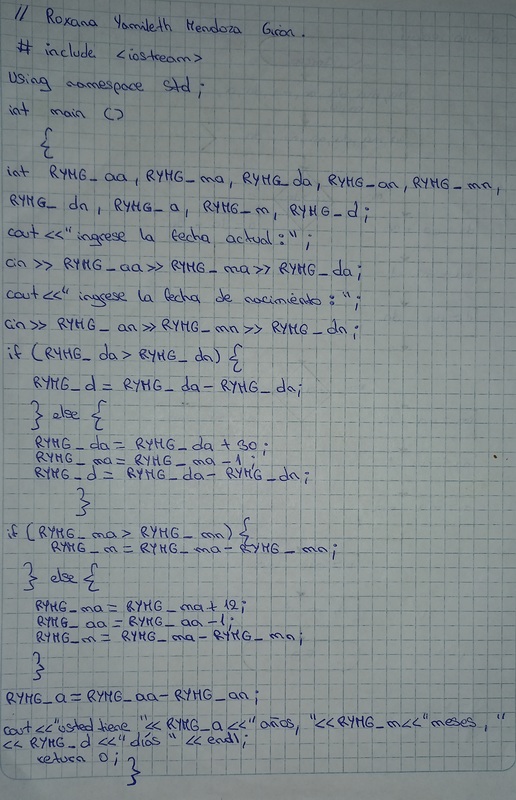 // Roxana Yamileth Mendoza Giron.
# include <iostream>
Using namespace std;
int main ()
{
int RYMG_aa, RYMG_ma, RYMG_da, RYMG_an, RYMG_mn,
RYMG_dn, RYMG_a, RYMG_m, RYMG_d;
cout <<"ingrese la fecha actual:";
cin >> RYMG_aa>> RYMG_ma>> RYMG_da;
cout<<"ingrese la fecha de nacimiento:";
cin>> RYMG_an>> RYMG_mn>> RYMG_dn;
if (RYMG_da> RYMG_dn) {
RYMG_d = RYMG_da-RYMG_dn;
} else {
RYMG_da= RYMG_da + 30;
RYMG_ma= RYMG_ma-1;
RYMG_d= RYMG_da- RYMG_dn;
}
if (RYMG_ma> RYMG_mn) {
RYMG_m= RYMG_ma- RYMG_mn;
} else {
RYMG_ma= RYMG_ma+12;
RYMG_aa= RYMG_aa-1;
RYMG_m= RYMG_ma-RYMG_mn;
}
RYMG_a=RYMG_aa-RYMG_an;
cout<<"usted tiene "<< RYMG_a<<" años, "<<RYMG_m<<"meses, "
<< RYMG_d <<" dias " << endl;
return 0; }